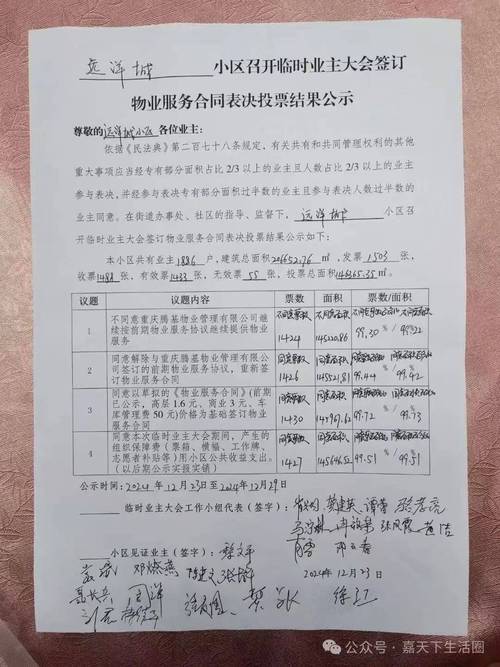 远洋城 小区召开临时业主大会签订
物业服务合同表决投票结果公示
尊敬的远洋城小区各位业主：
依据《民法典》第二百七十八条规定，有关共有和共同管理权利的其他
重大事项应当经专有部分面积占比 2/3 以上的业主且人数占比 2/3 以上的业主
参与表决，并经参与表决专有部分面积过半数的业主且参与表决人数过半数的
业主同意。在街道办事处、社区的指导、监督下，远洋城 小区召
开临时业主大会签订物业服务合同表决投票结果公示如下：
本小区共有业主 1886 户，建筑总面积 206652.76 ㎡，发票 1503 张，
收票 1488 张，有效票 1433 张，无效票 55 张，投票总面积 146365.35 ㎡。
议题 议题内容 票数 面积 票数/面积
1 不同意重庆腾基物业管理有限公司继续按前期物业服务协议继续提供物业服务 不同意票数 1424 99.30%/99.22
2 同意解除与重庆腾基物业管理有限公司签订的前期物业服务协议，重新签订物业服务合同 同意票数 1426 145521.81 99.44%/99.42
3 同意以草拟的《物业服务合同》（前期已公示，高层 1.6 元、商业 3 元、车库管理费 50 元）价格为基础签订物业服务合同 同意票数 1430 99.72%/99.73
4 同意本次临时业主大会期间，产生的组织保障费（票箱、横幅、工作牌、志愿者补贴等）用小区公共收益支出。（以后期公示实报实销） 同意票数 1427 145646.52 99.51%/99.51
公示时间：2024 年 12 月 23 日至 2024 年 12 月 29 日
临时业主大会工作小组代表（签字）：
小区见证业主（签字）：
2024年12月23日
公众号 · 嘉天下生活圈